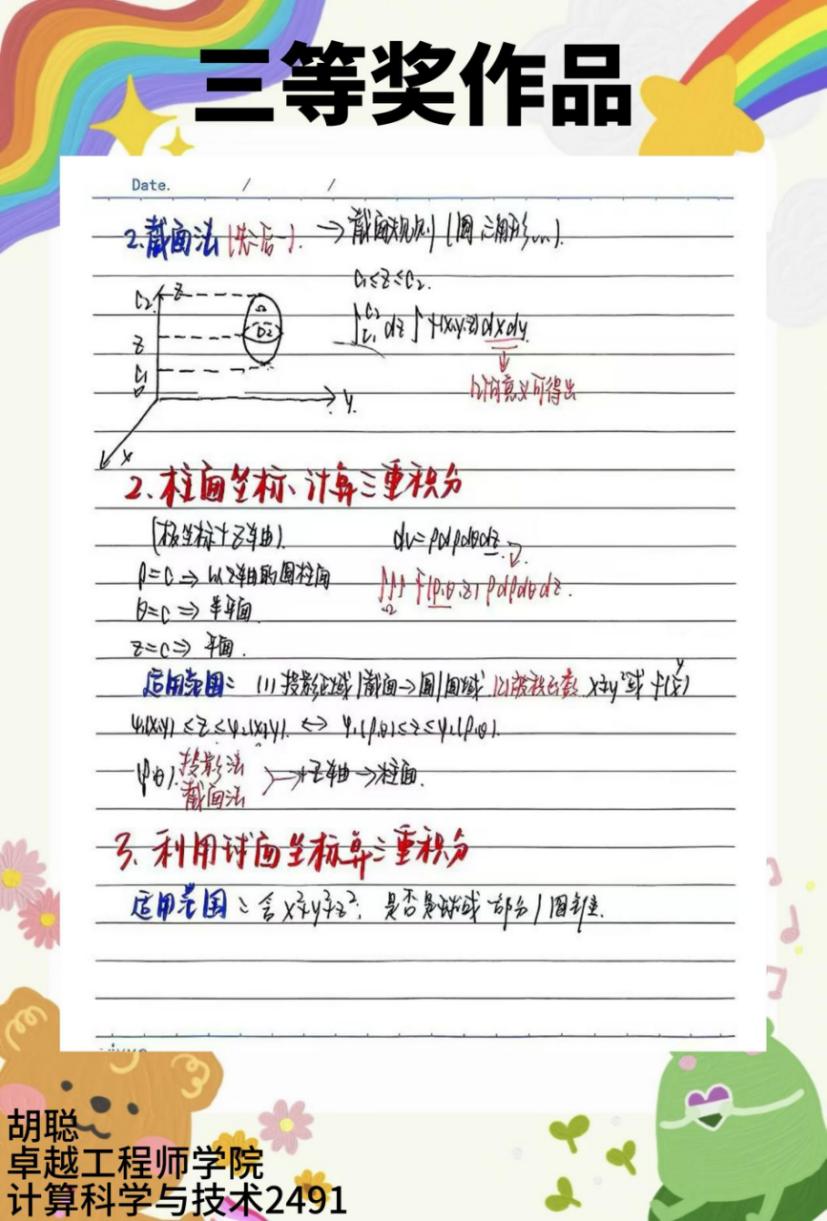 三等奖作品
Date. / /
2.截面法(先二后一). → 截面规则(圆 三角形...).
C₁≤z≤C₂.
C₂ z
Ω
∫_{C₁}^{C₂} dz ∫ f(x,y,z) dxdy
z Dz
C₁
0 y.
几何意义可得出
x
2.柱面坐标、计算三重积分
(极坐标+z轴). dv=ρdρdθdz
ρ=C ⇒ 以z轴的圆柱面 ∭_Ω f(ρ,θ,z) ρdρdθdz.
θ=C ⇒ 半平面
z=C ⇒ 平面.
适用范围: (1)投影区域/截面→圆/圆域 (2)被积函数 x²+y²或 f(y/x)
φ₁(x,y)≤z≤φ₂(x,y). ↔
投影法 +z轴→柱面.
截面法
3、利用球面坐标算三重积分
适用范围: 含x²+y²+z²; 是否是球域 部分/圆锥.
胡聪
卓越工程师学院
计算科学与技术2491